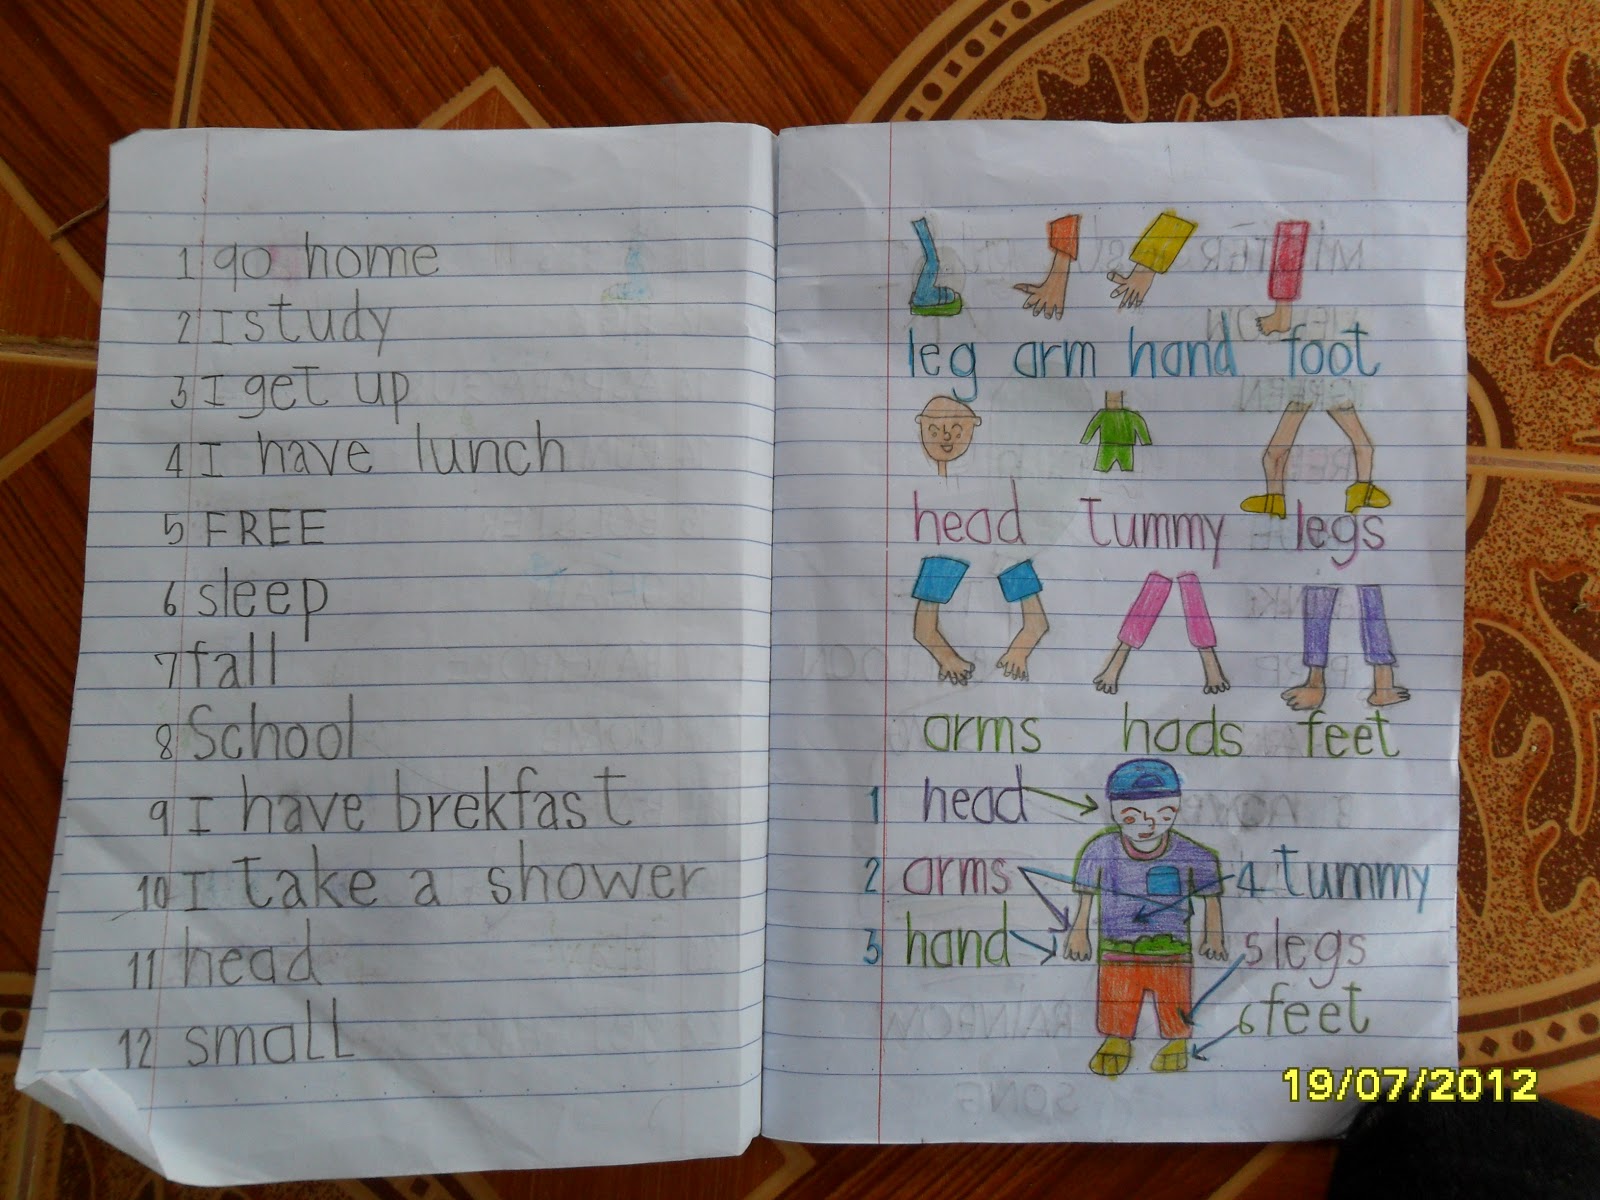 1 go home
2 I study
3 I get up
4 I have lunch
5 FREE
6 sleep
7 fall
8 School
9 I have brekfast
10 I take a shower
11 head
12 small
leg arm hand foot
head tummy legs
arms hads feet
1 head
2 arms 4 tummy
3 hand 5 legs
6 feet
19/07/2012